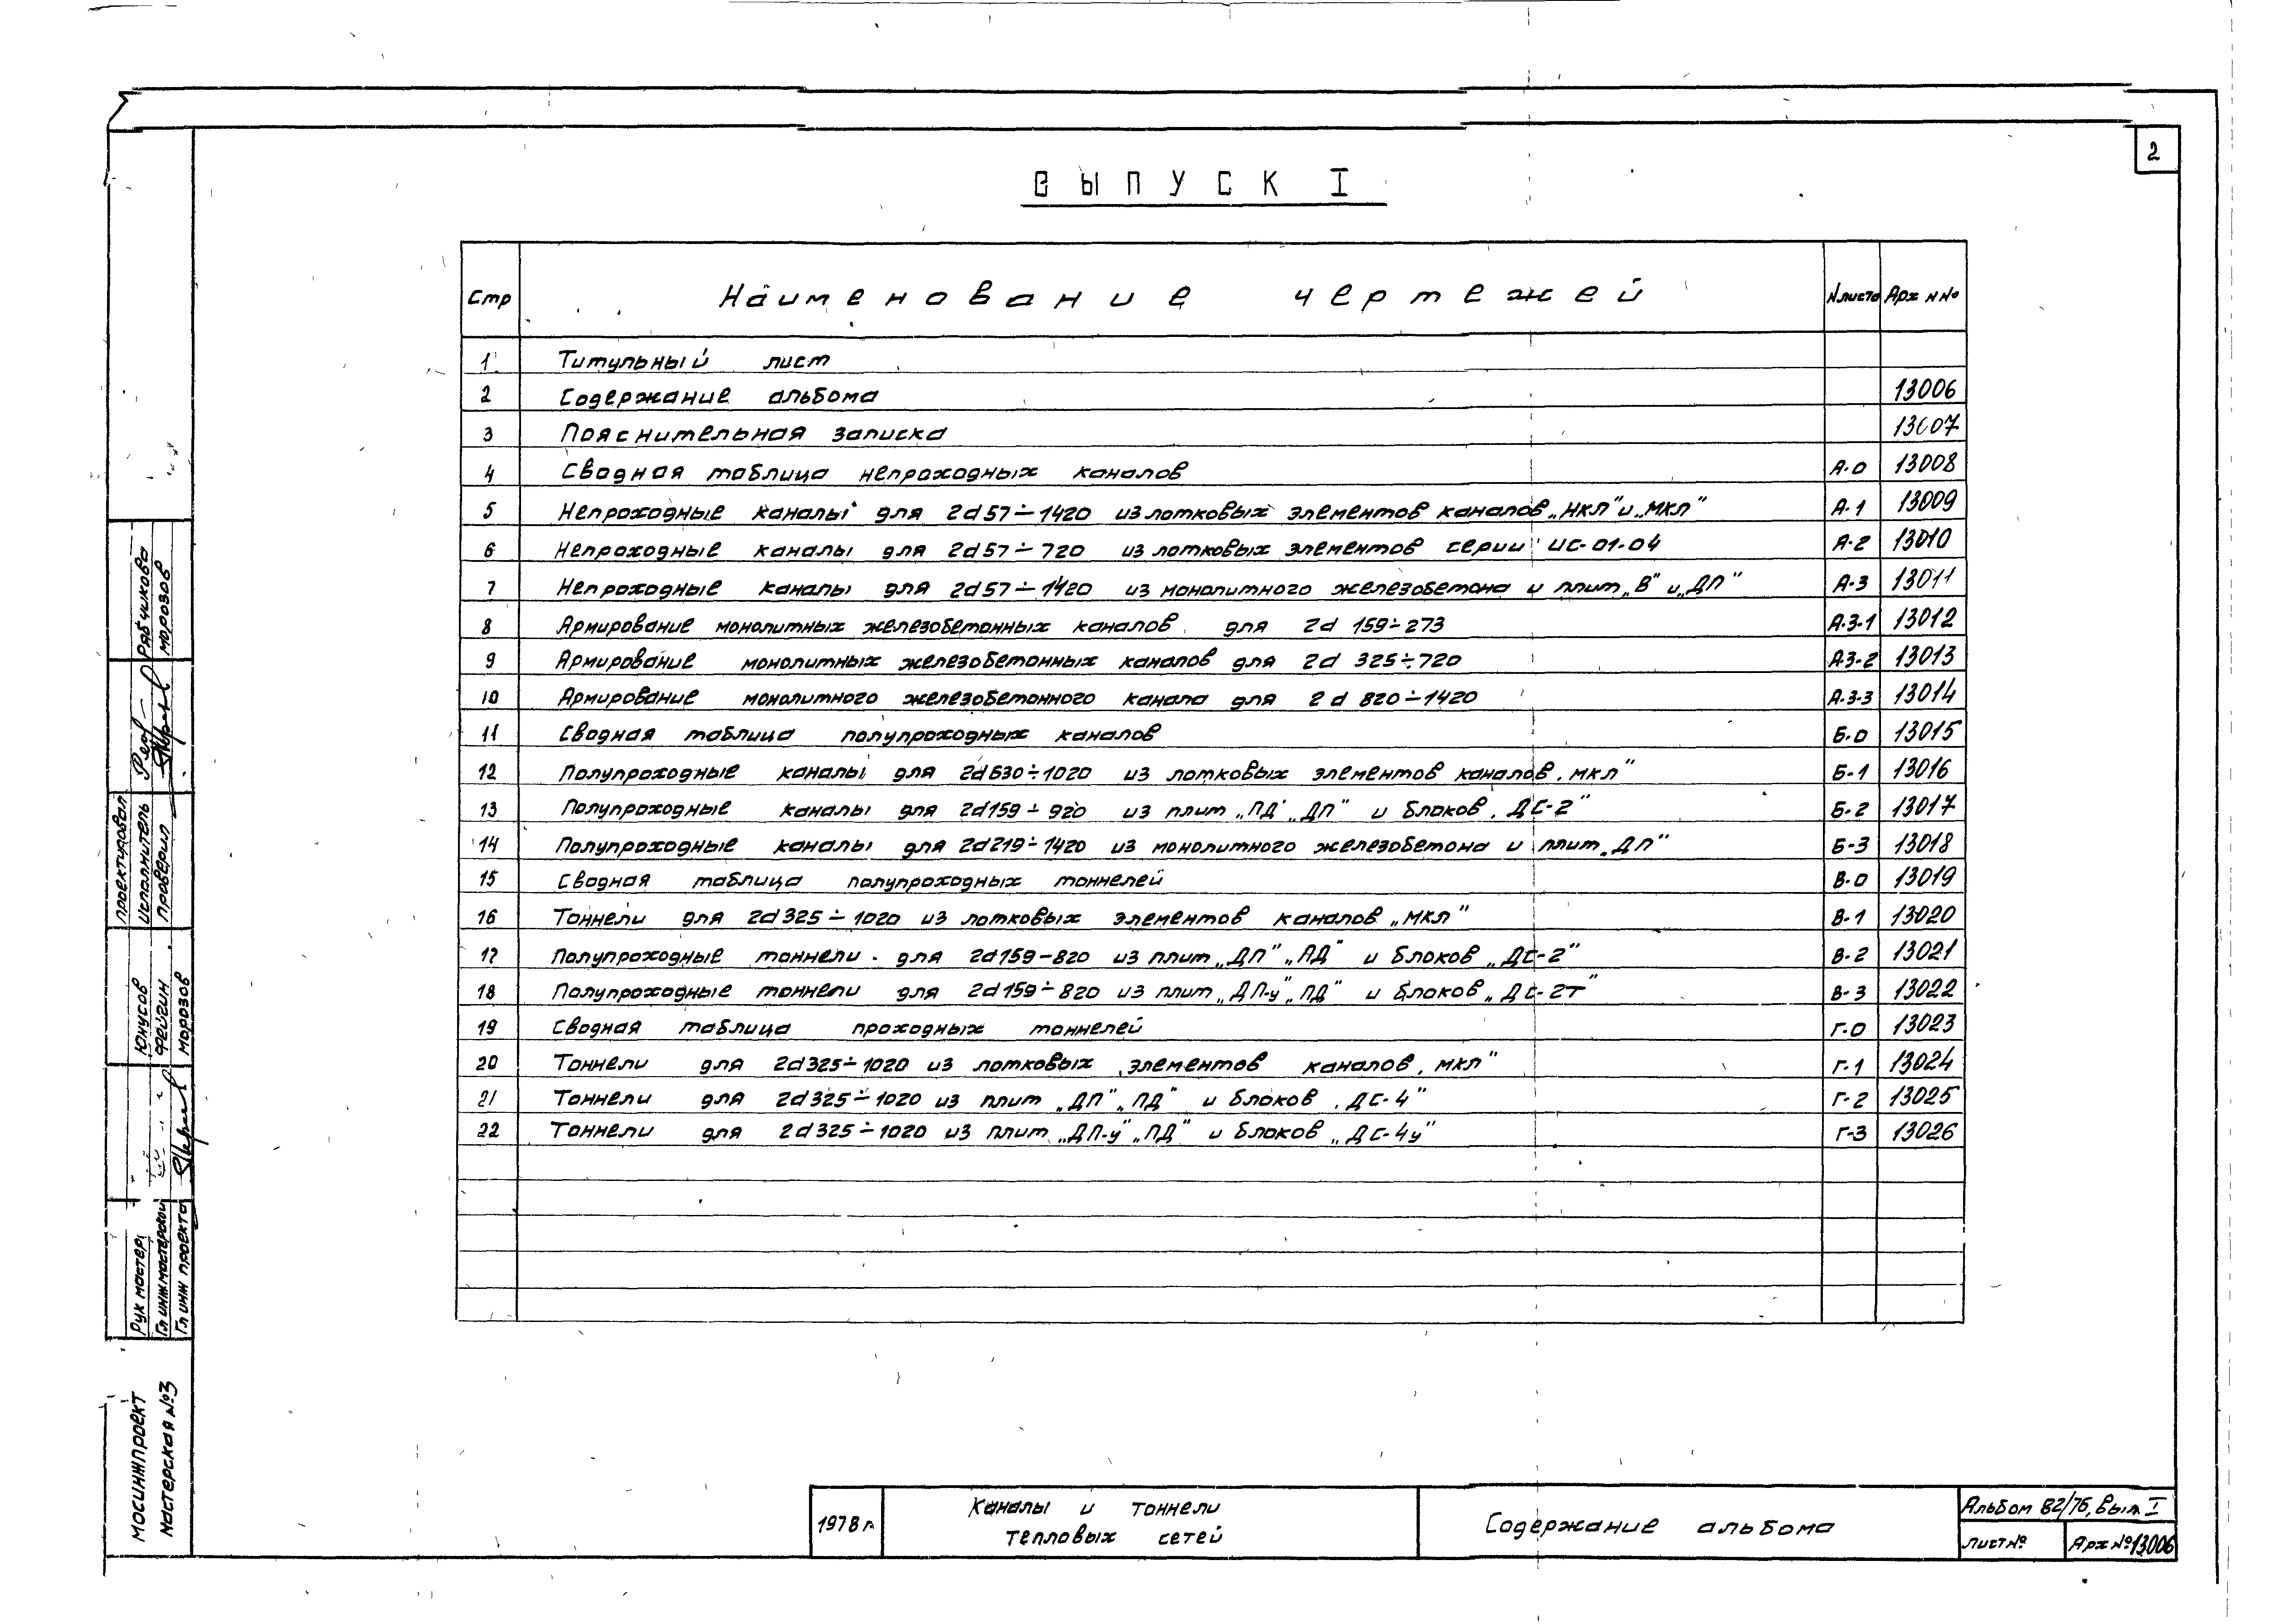 2
ВЫПУСК I
Стр Наименование чертежей N листа Арх N№
1 Титульный лист
2 Содержание альбома 13006
3 Пояснительная записка 13007
4 Сводная таблица непроходных каналов А-0 13008
5 Непроходные каналы для 2d57÷1420 из лотковых элементов каналов „НКЛ" и „МКЛ" А-1 13009
6 Непроходные каналы для 2d57÷720 из лотковых элементов серии ИС-01-04 А-2 13010
7 Непроходные каналы для 2d57÷1420 из монолитного железобетона и плит „В" и „ДП" А-3 13011
8 Армирование монолитных железобетонных каналов для 2d 159÷273 А-3-1 13012
9 Армирование монолитных железобетонных каналов для 2d 325÷720 А-3-2 13013
10 Армирование монолитного железобетонного канала для 2d 820÷1420 А-3-3 13014
11 Сводная таблица полупроходных каналов Б-0 13015
12 Полупроходные каналы для 2d630÷1020 из лотковых элементов каналов „МКЛ" Б-1 13016
13 Полупроходные каналы для 2d159÷920 из плит „ПД" „ДП" и блоков „ДС-2" Б-2 13017
14 Полупроходные каналы для 2d219÷1420 из монолитного железобетона и плит „ДП" Б-3 13018
15 Сводная таблица полупроходных тоннелей В-0 13019
16 Тоннели для 2d325÷1020 из лотковых элементов каналов „МКЛ" В-1 13020
17 Полупроходные тоннели для 2d159-820 из плит „ДП" „ПД" и блоков „ДС-2" В-2 13021
18 Полупроходные тоннели для 2d159÷820 из плит „ДП-у" „ПД" и блоков „ДС-2Т" В-3 13022
19 Сводная таблица проходных тоннелей Г-0 13023
20 Тоннели для 2d325÷1020 из лотковых элементов каналов „МКЛ" Г-1 13024
21 Тоннели для 2d325÷1020 из плит „ДП" „ПД" и блоков „ДС-4" Г-2 13025
22 Тоннели для 2d325÷1020 из плит „ДП-у" „ПД" и блоков „ДС-4у" Г-3 13026
Проектировал
Исполнитель Рябчикова
Проверил Морозов
Рук мастер Юнусов
Гл инж мастерской Фейгин
Гл инж проекта Морозов
МОСИНЖПРОЕКТ
Мастерская №3
1978 г.
Каналы и тоннели
тепловых сетей
Содержание альбома
Альбом 82/76, Вып. I
Лист № Арх №13006